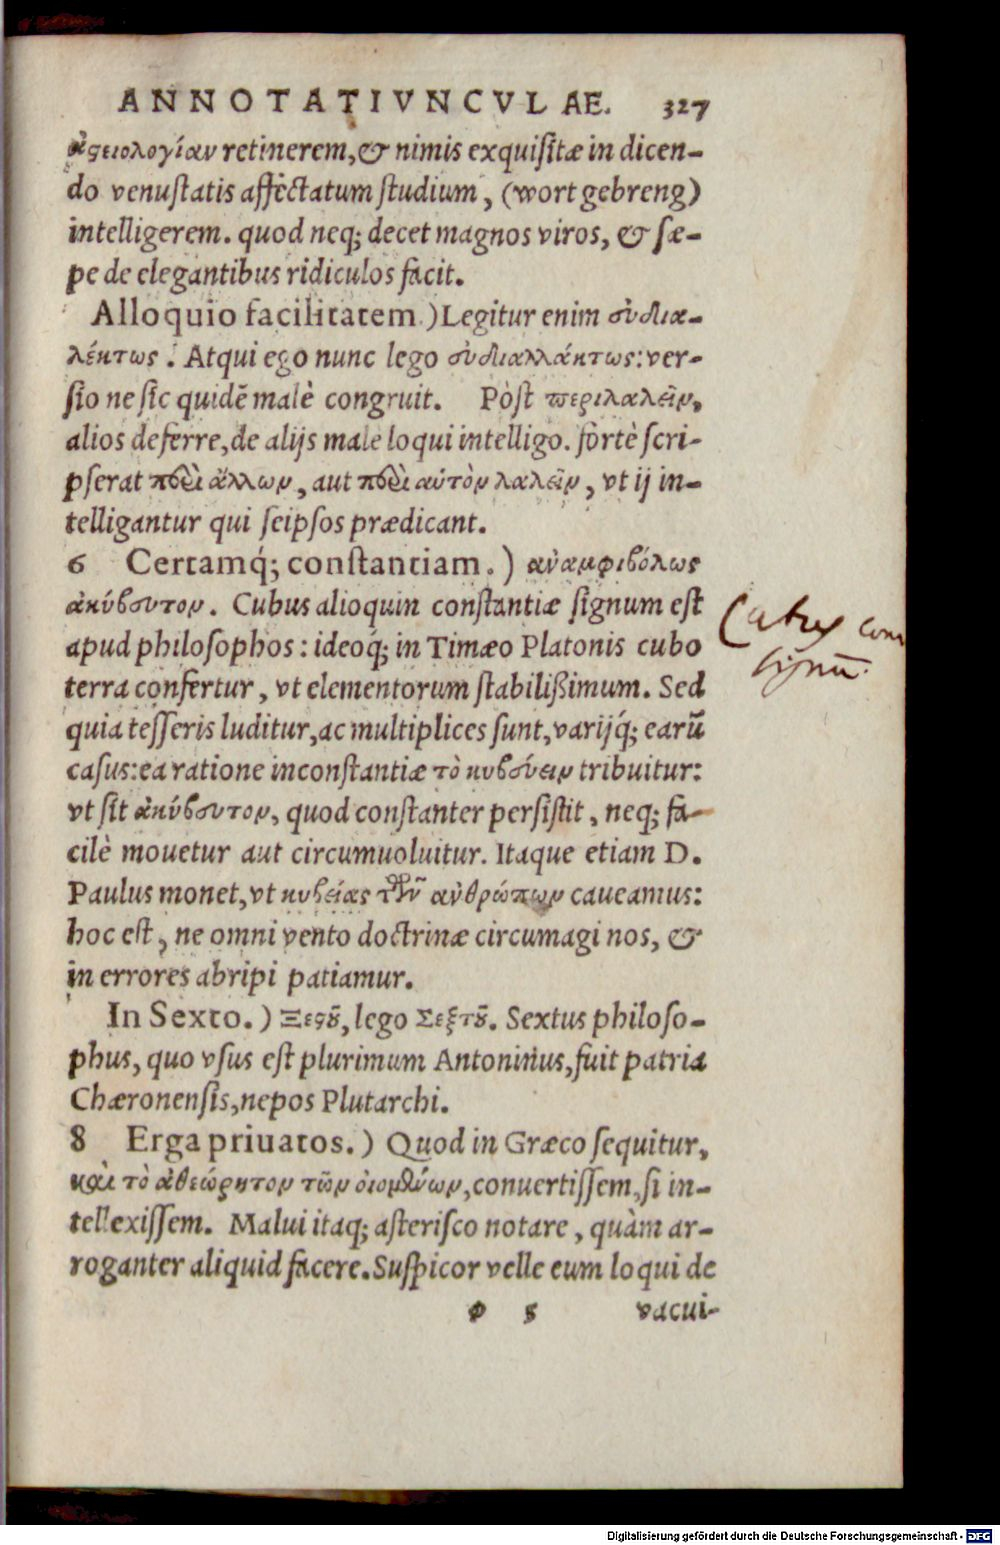 ANNOTATIVNCVLAE. 327
ἀςειολογίαν retinerem, & nimis exquisitæ in dicen-
do venustatis affectatum studium, (wort gebreng)
intelligerem. quod neq; decet magnos viros, & sæ-
pe de elegantibus ridiculos facit.
Alloquio facilitatem.) Legitur enim εὐδια-
λέκτως. Atqui ego nunc lego εὐδιαλλάκτως: ver-
sio ne sic quidē malè congruit. Pòst περιλαλεῖν,
alios deferre, de alijs male loqui intelligo. fortè scri-
pserat περὶ ἄλλων, aut περὶ αὐτὸν λαλεῖν, vt ij in-
telligantur qui seipsos prædicant.
6 Certamq́; constantiam.) ἀναμφιβόλως
ἀκύβευτον. Cubus alioquin constantiæ signum est
apud philosophos: ideoq́; in Timæo Platonis cubo
terra confertur, vt elementorum stabilißimum. Sed
quia tesseris luditur, ac multiplices sunt, varijq́; earū
casus: ea ratione inconstantiæ τὸ κυβεύειν tribuitur:
vt sit ἀκύβευτον, quod constanter persistit, neq; fa-
cilè mouetur aut circumuoluitur. Itaque etiam D.
Paulus monet, vt κυβείας τῶν ἀνθρώπων caueamus:
hoc est, ne omni vento doctrinæ circumagi nos, &
in errores abripi patiamur.
In Sexto.) Ξεςοῦ, lego Σεξτοῦ. Sextus philoso-
phus, quo vsus est plurimum Antoninus, fuit patria
Chæronensis, nepos Plutarchi.
8 Erga priuatos.) Quod in Græco sequitur,
καὶ τὸ ἀθεώρητον τῶν οἰομένων, conuertissem, si in-
tellexissem. Malui itaq; asterisco notare, quàm ar-
roganter aliquid facere. Suspicor velle eum loqui de
φ 5 vacui-
signū.
Digitalisierung gefördert durch die Deutsche Forschungsgemeinschaft - DFG